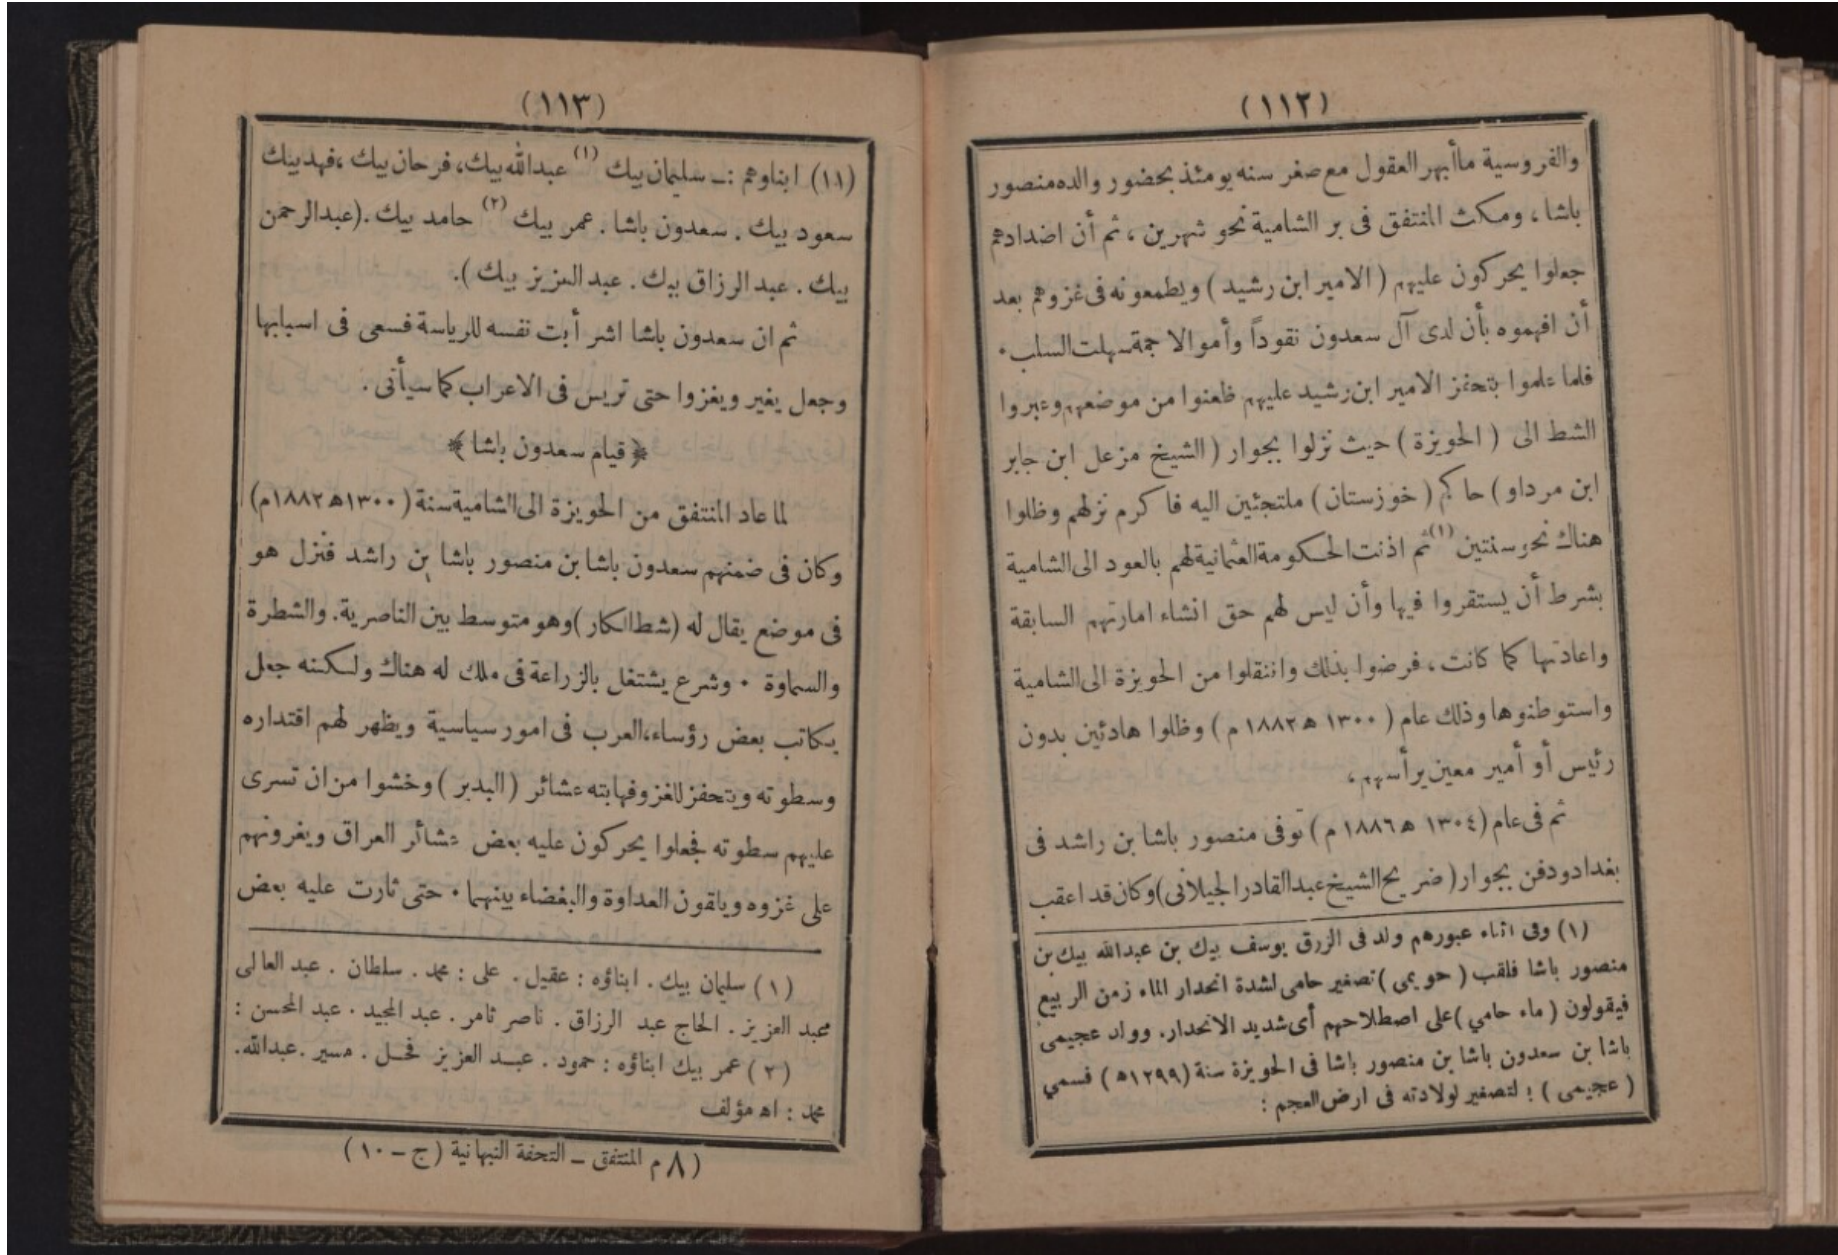 (١١٢)
والفروسية ماأبهر العقول مع صغر سنه يومئذ بحضور والده منصور
باشا ، ومكث المنتفق فى بر الشامية نحو شهرين ، ثم أن اضدادهم
جعلوا يحركون عليهم ( الامير ابن رشيد ) ويطمعونه فى غزوهم بعد
أن افهموه بأن لدى آل سعدون نقوداً وأموالا جمة سهلت السلب ٠
فلما علموا بتحفز الامير ابن رشيد عليهم ظعنوا من موضعهم وعبروا
الشط الى ( الحويزة ) حيث نزلوا بجوار ( الشيخ مزعل ابن جابر
ابن مرداو ) حاكم ( خوزستان ) ملتجئين اليه فا كرم نزلهم وظلوا
هناك نحو سنتين (١) ثم اذنت الحكومة العثمانية لهم بالعود الى الشامية
بشرط أن يستقروا فيها وأن ليس لهم حق انشاء امارتهم السابقة
واعادتها كما كانت ، فرضوا بذلك وانتقلوا من الحويزة الى الشامية
واستوطنوها وذلك عام ( ١٣٠٠ ه ١٨٨٢ م ) وظلوا هادئين بدون
رئيس أو أمير معين يرأسهم ،
ثم فى عام ( ١٣٠٤ ه ١٨٨٦ م ) توفى منصور باشا بن راشد فى
بغداد ودفن بجوار ( ضريح الشيخ عبد القادر الجيلانى ) وكان قد اعقب
(١) وفى اثناء عبورهم ولد فى الزرق يوسف بيك بن عبدالله بيك بن
منصور باشا فلقب ( حويمى ) تصغير حامى لشدة انحدار الماء زمن الربيع
فيقولون ( ماء حامي ) على اصطلاحهم أى شديد الانحدار. وولد عجيمى
باشا بن سعدون باشا بن منصور باشا فى الحويزة سنة (١٢٩٩ه) فسمي
( عجيمى ) ؛ لتصغير لولادته فى ارض العجم :
(١١٣)
(١١) ابناوهم :ـ سليمان بيك (١) عبدالله بيك، فرحان بيك ، فهد بيك
سعود بيك . سعدون باشا . عمر بيك (٢) حامد بيك .(عبدالرحمن
بيك . عبد الرزاق بيك . عبد العزيز بيك ).
ثم ان سعدون باشا اشرأبت نفسه للرياسة فسعى فى اسبابها
وجعل يغير ويغزوا حتى تريس فى الاعراب كما سيأتى .
﴿ قيام سعدون باشا ﴾
لما عاد المنتفق من الحويزة الى الشامية سنة ( ١٣٠٠ه ١٨٨٢م)
وكان فى ضمنهم سعدون باشا بن منصور باشا بن راشد فنزل هو
فى موضع يقال له (شط الكار) وهو متوسط بين الناصرية. والشطرة
والسماوة ٠ وشرع يشتغل بالزراعة فى ملك له هناك ولكنه جعل
يكاتب بعض رؤساء،العرب فى امور سياسية ويظهر لهم اقتداره
وسطوته ويتحفز للغزو فهابته عشائر ( البدبر ) وخشوا من ان تسرى
عليهم سطوته فجعلوا يحركون عليه بعض عشائر العراق ويغرونهم
على غزوه ويلقون العداوة والبغضاء بينهما ٠ حتى ثارت عليه بعض
(١) سليمان بيك . ابناؤه : عقيل . على : محمد . سلطان . عبد العالى
عبد العزيز . الحاج عبد الرزاق . ناصر ثامر . عبد المجيد . عبد المحسن :
(٢) عمر بيك ابناؤه : حمود . عبد العزيز فحل . مسير .عبدالله.
محمد : اه مؤلف
( ٨ م المنتفق ـ التحفة النبهانية ( ج ـ ١٠ )